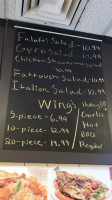 Falafel Salad - 10.99
Gyro Salad - 11.99
Chicken Shawerma Salad
- 10.99
Fattoush Salad - 10.99
Italian Salad - 10.99
Wings
5-piece - 6.99
10-piece - 12.99
20-piece - 19.99
Garlic
Hot
BBQ
Regular